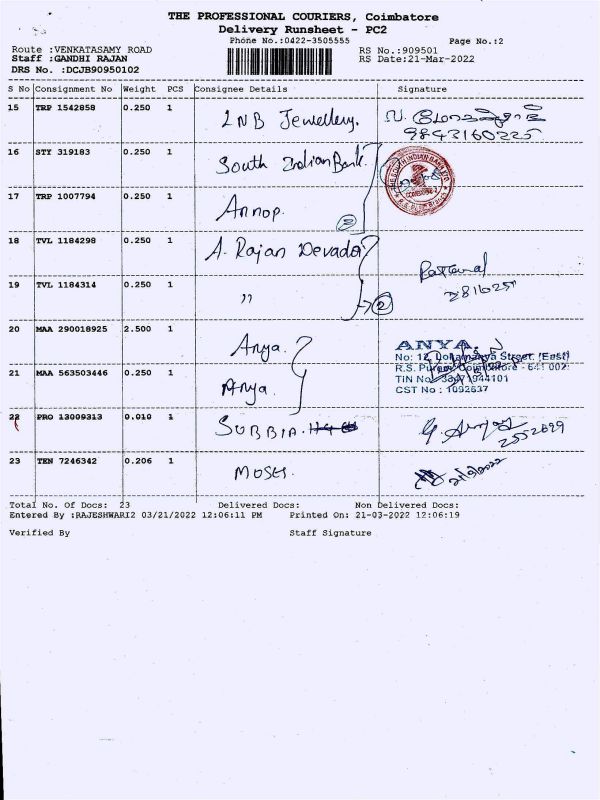 THE PROFESSIONAL COURIERS, Coimbatore
Delivery Runsheet - PC2
Phone No.:0422-3505555
Page No.:2
Route :VENKATASAMY ROAD
RS No.:909501
Staff :GANDHI RAJAN
RS Date:21-Mar-2022
DRS No. :DCJB90950102
S No Consignment No Weight PCS Consignee Details Signature
15 TRP 1542858 0.250 1 LNB Jewellery.
9843160225
16 STY 319183 0.250 1 South Indian Bank.
17 TRP 1007794 0.250 1 Annop. 2
18 TVL 1184298 0.250 1 A. Rajan Devador
19 TVL 1184314 0.250 1 " 2
20 MAA 290018925 2.500 1 Anya.
ANYA.
21 MAA 563503446 0.250 1 Anya.
CST No : 1092637
22 PRO 13009313 0.010 1 SUBBIA.
2552699
23 TEN 7246342 0.206 1 MOSES. 21/3/2022
Total No. Of Docs: 23 Delivered Docs: Non Delivered Docs:
Entered By :RAJESHWARI2 03/21/2022 12:06:11 PM Printed On: 21-03-2022 12:06:19
Verified By Staff Signature